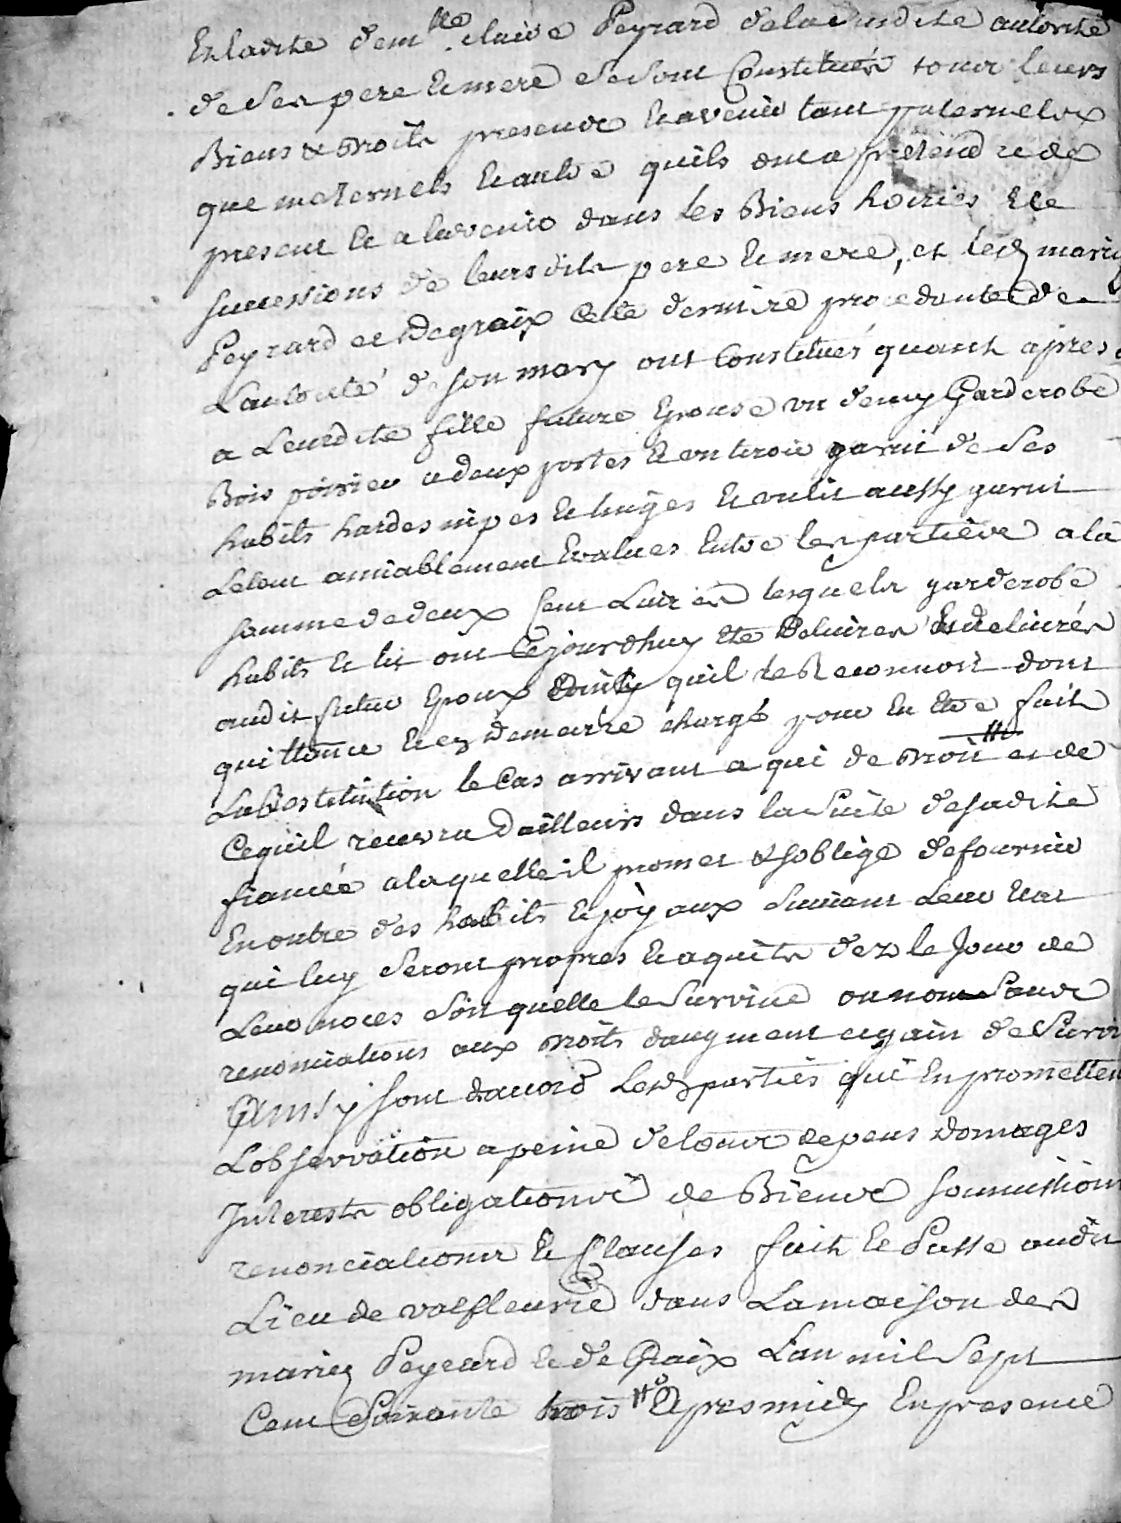 Et ladite dem.lle claire Peyrard de la susdite autorité
de ses pere et mere se sont Constitués tous leurs
Biens et Droits presens et avenir tant paternels
que maternels et autre quils ont a pretendre de
present et a lavenir dans les Biens hoiries et
successions de leursdits pere et mere, et lesd mariés
Peyrard et Degraix cette derniere procedante de
Lautorité de son mary ont Constitués quant apres
a Leurdite fille future Epouse un demy Garderobe
Bois poirier a deux portes et un tiroir garni de ses
habits hardes nipes et linges et un lit aussy garni
Letout amiablement Evalués Entre les parties a la
somme de deux Cent Livres lesquels garderobe
habits et lit ont Cejourdhuy été Delivrés
audit futur Epoux qu'il le Reconnoit dont
quittance et en demeure chargé pour en Etre fait
La Restitution le Cas arrivant a qui de Droit et de
Cequil recevra Dailleurs dans la suite de sadite
fiancée a laquelle il promet et soblige de fournir
En outre des habits et joyaux suivant Leur Etat
qui luy seront propres et aquits dez le Jour de
Leur noces soit quelle le survive ou non sans
renonciations aux Droits daugment et gain de survie
Ainsy sont daccord Lesd parties qui En promettent
Lobservation a peine de tous depens Domages
Interests obligations de Biens soumissions
renonciations et Clauses fait et Passé audit
Lieu de valfleurie dans La maison des
mariés Peyrard et de Graix Lan mil Sept
Cent Soixante trois Et apres midy En presence